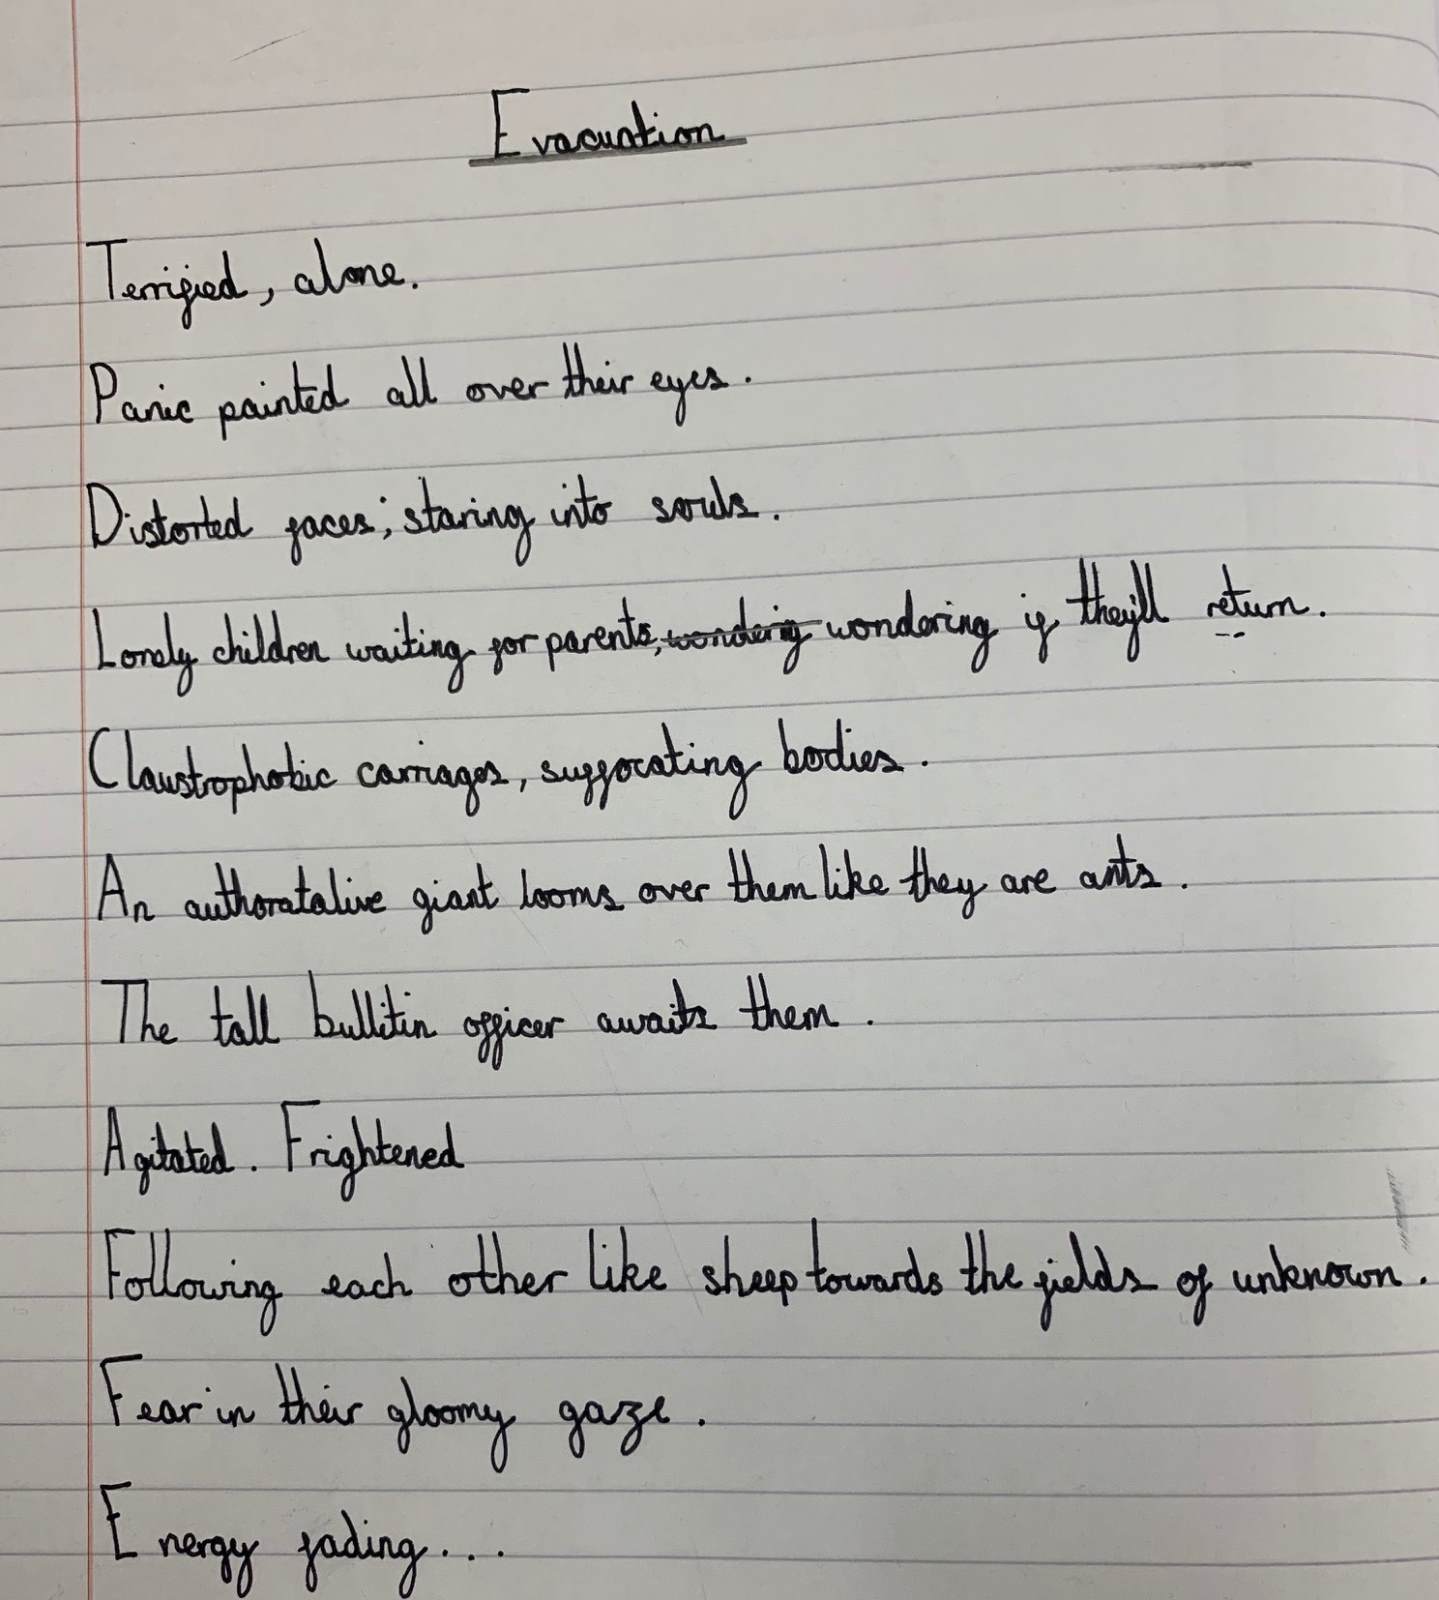 Evacuation
Terrified, alone.
Panic painted all over their eyes.
Distorted faces; staring into souls.
Lonely children waiting for parents, wondering wondering if they'll return.
Claustrophobic carriages, suffocating bodies.
An authoratative giant looms over them like they are ants.
The tall bullitin officer awaits them.
Agitated. Frightened
Following each other like sheep towards the fields of unknown.
Fear in their gloomy gaze.
Energy fading...